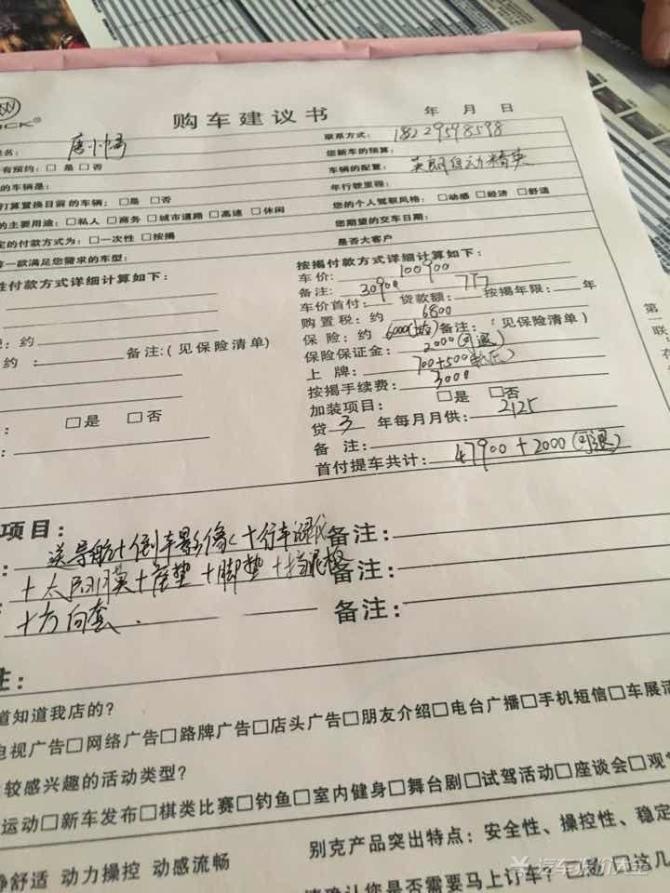 购车建议书
年 月 日
名：
联系方式：18229598598
有预约：□是□否
您新车的预算：
的车辆是：
车辆的配置：英朗自动精英
打算置换目前的车辆：□是 □否
年行驶里程：
的主要用途：□私人 □商务 □城市道路 □高速 □休闲
您的个人驾驭风格：□动感 □经济 □舒适
定的付款方式为：□一次性 □按揭
您期望的交车日期：
一款满足您需求的车型：
是否大客户
付款方式详细计算如下：
按揭付款方式详细计算如下：
车价：100900
备注：30900
车价首付： 贷款额： 按揭年限： 年
购置税：约 6800
：约
保险：约 6000 备注：(见保险清单)
约： 备注：(见保险清单)
保险保证金：2000(可退)
上牌：700+500
按揭手续费：3000
加装项目： □是 □否
： □是 □否
贷 3 年每月月供：2125
备注：
首付提车共计：47900+2000(可退)
项目：
送导航+倒车影像 +行车记录仪 备注：
+太阳膜+座垫+脚垫+挡泥板 备注：
+方向套. 备注：
注：
道知道我店的？
电视广告□网络广告□路牌广告□店头广告□朋友介绍□电台广播□手机短信□车展活
较感兴趣的活动类型？
运动□新车发布□棋类比赛□钓鱼□室内健身□舞台剧□试驾活动□座谈会□观赏
别克产品突出特点：安全性、操控性、稳定
静舒适 动力操控 动感流畅
请确认您是否需要马上订车？□是 □
第一联
汽车报价大全